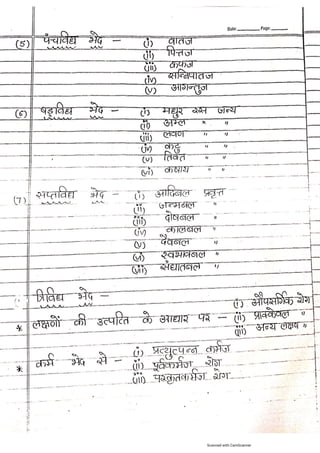 Date ______ Page ______
(5) पंचविध भेद - (i) वातज
(ii) पित्तज
(iii) कफज
(iv) सन्निपातज
(v) आगन्तुज
(6) षड्विध भेद - (i) मधुर रस जन्य
(ii) अम्ल " "
(iii) लवण " "
(iv) कटु " "
(v) तिक्त " "
(vi) कषाय " "
(7) सप्तविध भेद - (i) आदिबल प्रवृत्त
(ii) जन्मबल "
(iii) दोषबल "
(iv) कालबल "
(v) दैवबल "
(vi) स्वभावबल "
(vii) संघातबल "
त्रिविध भेद -
(i) औपसर्गिक रोग
* लक्षणों की उत्पत्ति के आधार पर - (ii) प्राक्केवल "
(iii) अन्य लक्षण "
* कर्म भेद से - (i) प्रत्युत्पन्न कर्मज
(ii) पूर्वकर्मज रोग
(iii) परकृतकर्मज रोग
Scanned with CamScanner